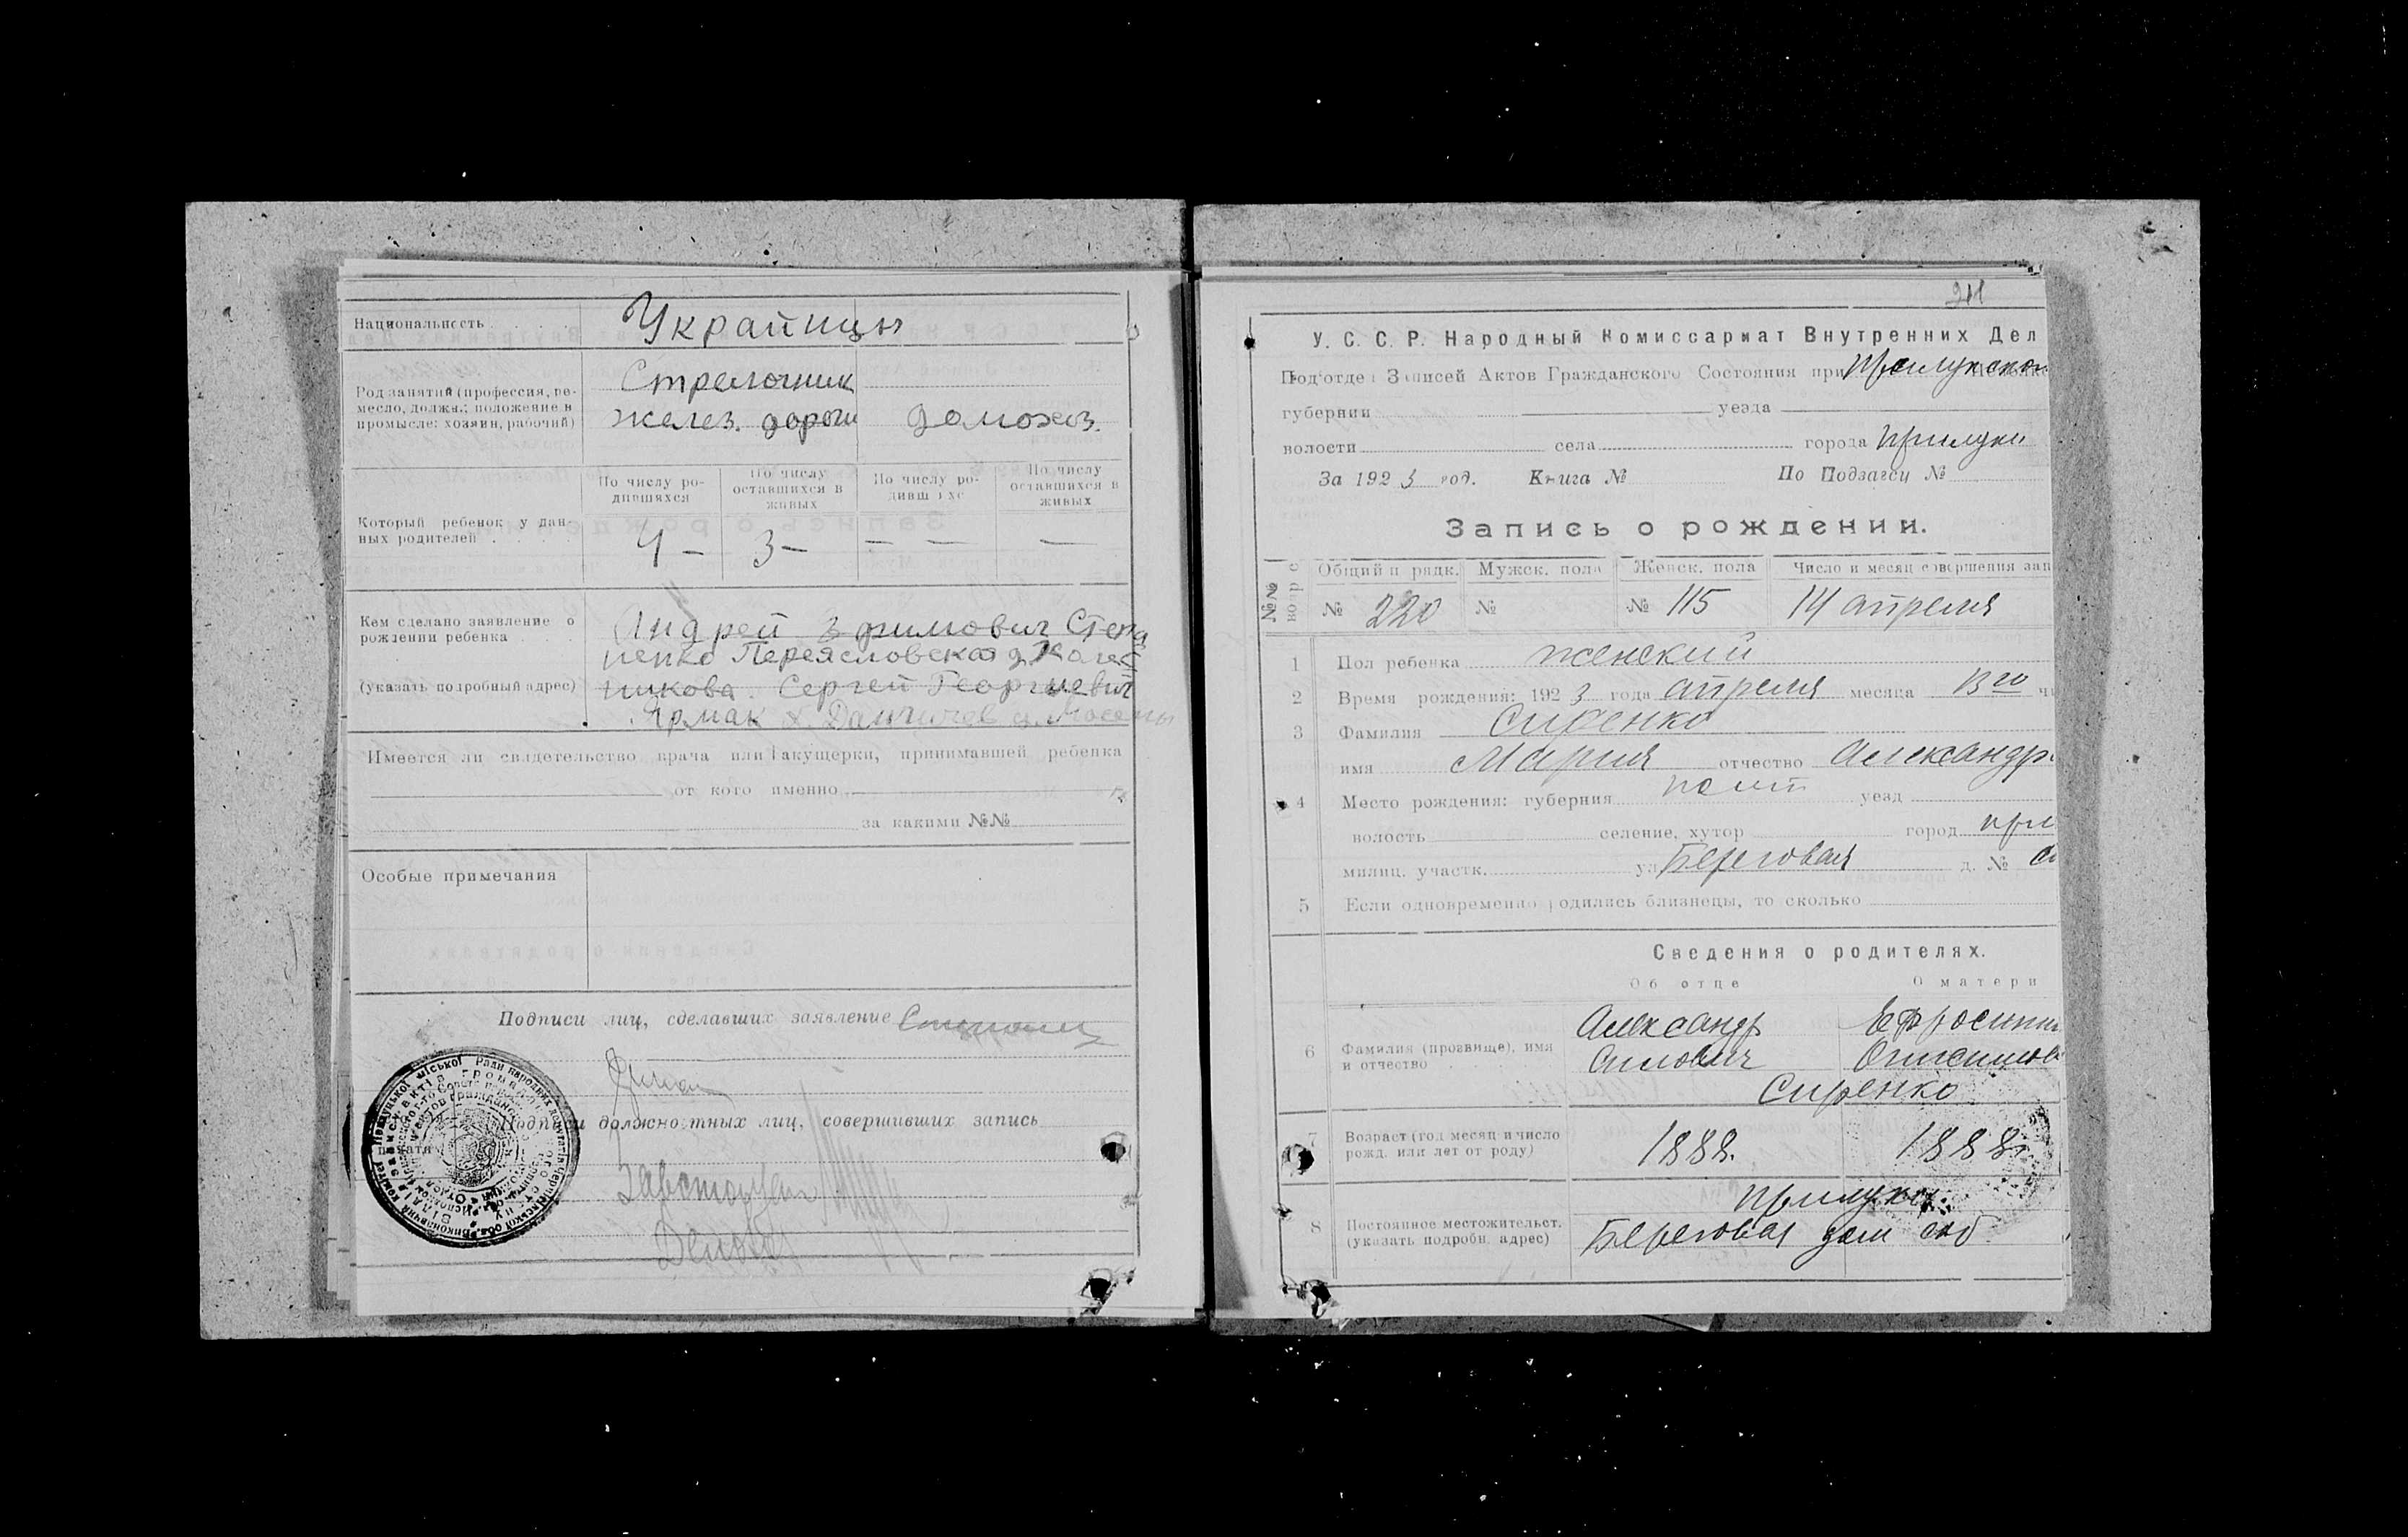 Национальность Украинцы
Род занятий (профессия, ре-
месло, должн.; положение в
промысле: хозяин, рабочий)
Стрелочник
желез. дороги домохоз.
По числу ро-
дившихся
По числу
оставшихся в
живых
По числу ро-
дившихс
По числу
оставшихся в
живых
Который ребенок у дан-
ных родителей 4 – 3 – — — —
Кем сделано заявление о
рождении ребенка
(указать подробный адрес)
Андрей Степа
ненко Переясловская
Сергей Георгиевич
Ярмак х.
Имеется ли свидетельство врача или акушерки, принимавшей ребенка
от кого именно
за какими №№
Особые примечания
Подписи лиц, сделавших заявление
Подписи должностных лиц, совершивших запись
печати
211
У. С. С. Р. Народный Комиссариат Внутренних Дел
Подотдел Записей Актов Гражданского Состояния при Прилукском
губернии уезда
волости села города Прилуки
За 1923 год. Книга № По Подзагсу №
Запись о рождении.
№№ Общий п рядк. Мужск. пола Женск. пола Число и месяц совершения зап
№ 220 № № 115 14 апреля
1 Пол ребенка женский
2 Время рождения: 1923 года апреля месяца 13 го чи
3 Фамилия Сиренко
имя Мария отчество Александр.
4 Место рождения: губерния полт уезд
волость селение, хутор город при
милиц. участк. ул Береговая д. № со
5 Если одновременно родились близнецы, то сколько
Сведения о родителях.
Об отце О матери
6 Фамилия (прозвище), имя
и отчество
Александр Ефросиния
Силович Онисимов
Сиренко
7 Возраст (год месяц и число
рожд. или лет от роду)
1888. 1888г.
8 Постоянное местожительст.
(указать подробн. адрес)
Прилуки
Береговая дом соб